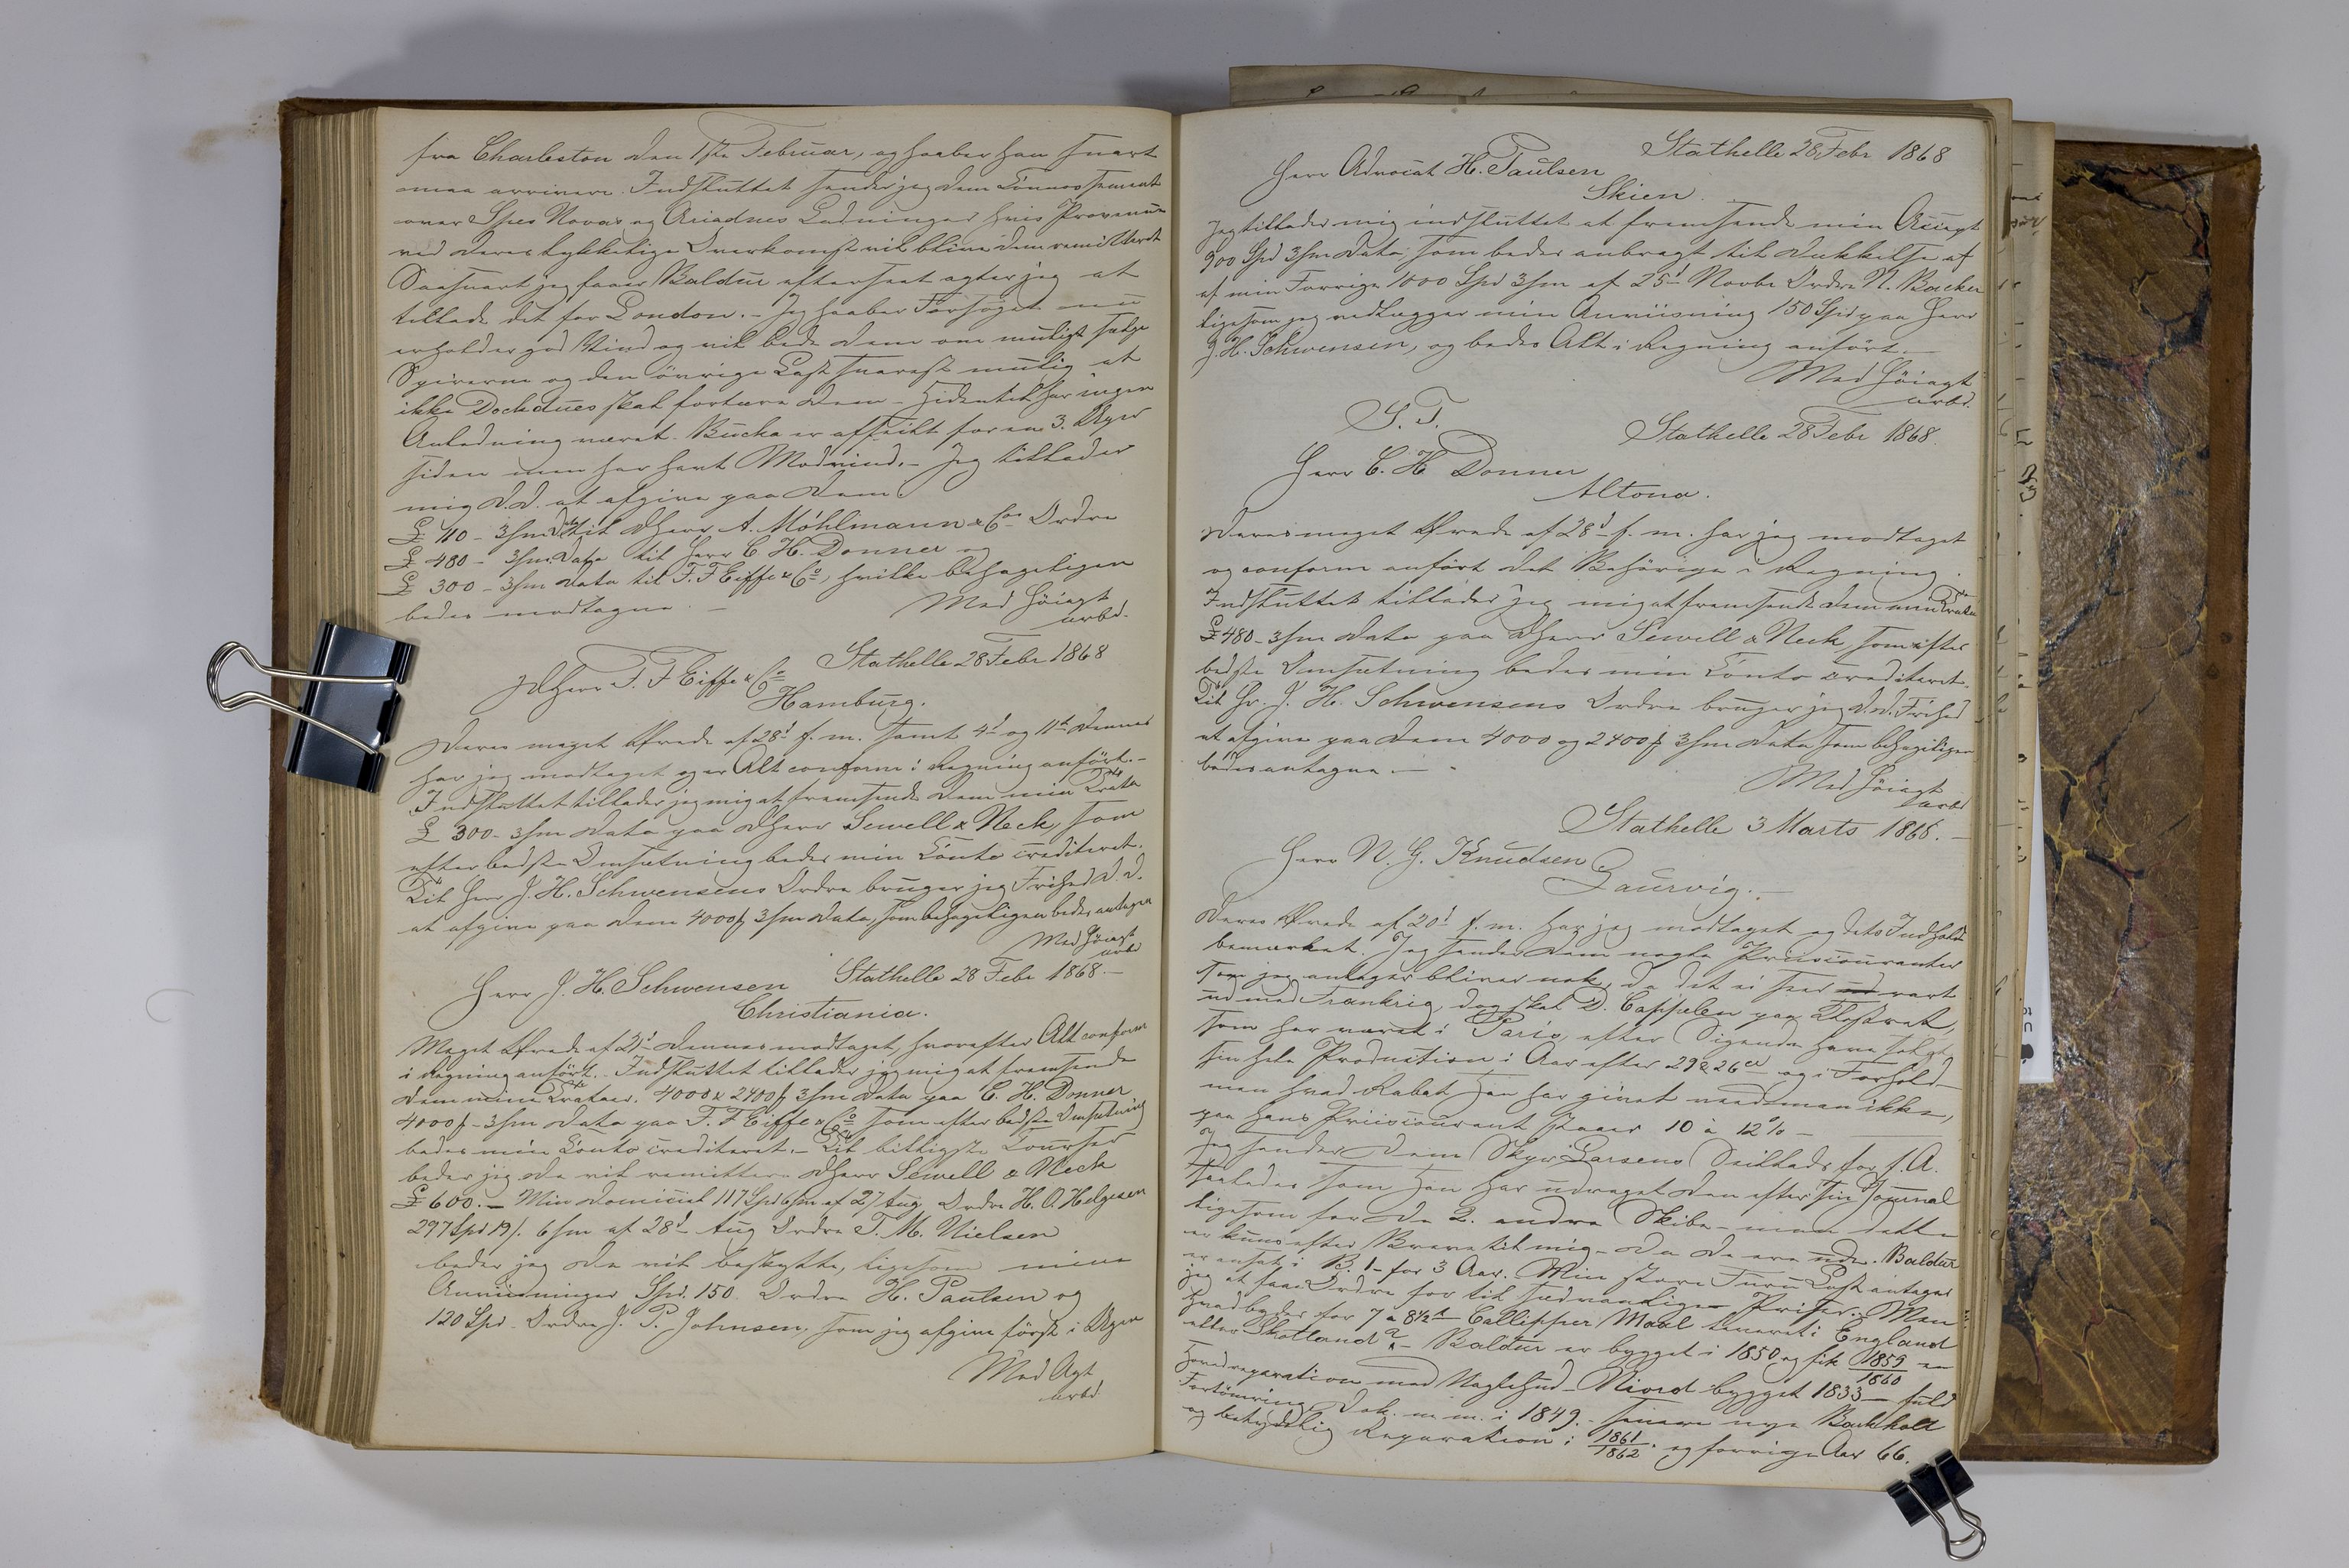 fra Charleston den 1ste Februar, og haaber han snart
maa arrivere. Indsluttet sender jeg Dem Connossement
over Spes Novas og Ariadnes Ladninger hvis Provenue
ved deres lykkelige Overkomst vil blive Dem remitteret
Saasnart jeg faaer Baldur efterseet agter jeg at
tillade det for London. – Jeg haaber Forsøget nu
erholder god Vind og vil bede Dem om muligt sælge
Spirerne og den øvrige Last snarest mulig at
ikke Dockdues skal fortære Dem – Hidentil har ingen
Anledning været. Bucka er afseilt for en 3. Uger
siden men har havt Modvind. – Jeg tillader
mig D.D. at afgive paa Dem
£ 110 – 3/m Dato til DHerr A. Möhlmann & Co Ordre
£ 480 – 3/m Dato til Herr C H. Donner og
£ 300 – 3/m Dato til F. F Eiffe & Co, hvilke behageligen
bedes modtagne. –
Med Höiagt
arbd.
Stathelle 28 Febr 1868
DHerr F. F Eiffe & Co
Hamburg.
Deres meget Ærede af 28d f. m. samt 4d og 11te dennes
har jeg modtaget og er Alt conform i Regning anført. –
Indsluttet tillader jeg mig at fremsende Dem min Tratte
£ 300 – 3/m Dato paa DHerr Sewell & Neck, som
efter bedste Omsætning bedes min Conto crediteret.
Til Herr J. H. Schwensens Ordre bruger jeg Frihed D.D.
at afgive paa Dem 4000 3/m Dato, som behageligen bedes antagen
Med Höiagt
arbd
Herr J. H. Schwensen Stathelle 28 Febr 1868. –
Christiania.
Meget Ærede af 21d dennes modtaget, hvorefter Alt conform
i Regning anført. – Indsluttet tillader jeg mig at fremsende
Dem mine Tratter. 4000 & 2400 3/m Dato paa C. H. Donner
4000 – 3/m Dato paa F. F Eiffe & Co som efter bedste Omsætning
bedes min Conto crediteret. – Til billigste Courser
beder jeg De vil remittere DHerr Sewell & Neck
£ 600. – Min Domicil 117 Spd 6/m af 27 Aug Ordre H. O. Helgesen
297 Spd 19/. 6/m af 28d Aug Ordre T. M. Nielsen
beder jeg De vil beskytte, ligesom mine
Anvisninger Spd. 150. Ordre H. Paulsen og
120 Spd. Ordre J. P. Johnsen, som jeg afgive først i Ugen
Med Agt
arbd.
Stathelle 28 Febr 1868
Herr Advocat H. Paulsen
Skien.
Jeg tillader mig indsluttet at fremsende min Accept
900 Spd 3/m Dato som bedes anbragt til Dækkelse af
af min Forrige 1000 Spd 3/m af 25d Novbr Ordre N. Backer
ligesom jeg vedlægger min Anviisning 150 Spd paa Herr
J. H. Schwensen, og bedes Alt i Regning anført. –
Med Höiagt
arbd.
S. T. Stathelle 28 Febr 1868.
Herr C. H Donner
Altona.
Deres meget Ærede af 28d f. m. har jeg modtaget
og conform anført det Behørige i Regning.
Indsluttet tillader jeg mig at fremsende Dem min Tratte
£ 480 – 3/m Dato paa DHerr Sewell & Neck, som efter
bedste Omsætning bedes min Conto crediteret.
Til Hr. J. H. Schwensens Ordre bruger jeg D.D. Frihed
at afgive paa Dem 4000 og 2400 3/m Dato som behageligen
bedes antagne. –
Med Höiagt
arbd
Stathelle 3 Marts 1868. –
Herr N. G. Knudsen
Laurvig. –
Deres Ærede af 20d f. m. har jeg modtaget og dets Indhold
bemærket. Jeg sender Dem nogle Priiscouranter
som jeg antager bliver nok, da det ei seer ud vart
ud med Frankrig, dog skal D. Cappelen paa Klostret,
som har været i Paris, efter Sigende have solgt
sin hele Production i Aar efter 29 à 26 og i Forhold
men hvad Rabat han har givet veed man ikke,
paa hans Priiscourant staaer 10 à 12% –
Jeg sender Dem Skpr Larsens Seillads for f. A.
saaledes som han har udraget den efter sin Journal
ligesom for de 2. andre Skibe – men dette
er kuns efter Breve til mig – da de ere ude. Baldur
er ansat i B. 1 – for 3 Aar. Min store Furu Last antager
jeg at faae Ordre for til sædvanlige Priser. Men
hvad bydes for 7 a 8½ Callipper Maal leveret i England
eller Skotland? – Baldur er bygget i 1850 og fik 1859/1860 en
Hovedreparation med Naglehud – Niord bygget 1833 – fuld
Fortömring, Dek. m. m. i 1849. – senere nye Bakholt
og betydelig Reparation i 1861/1862. og forrige Aar 66.